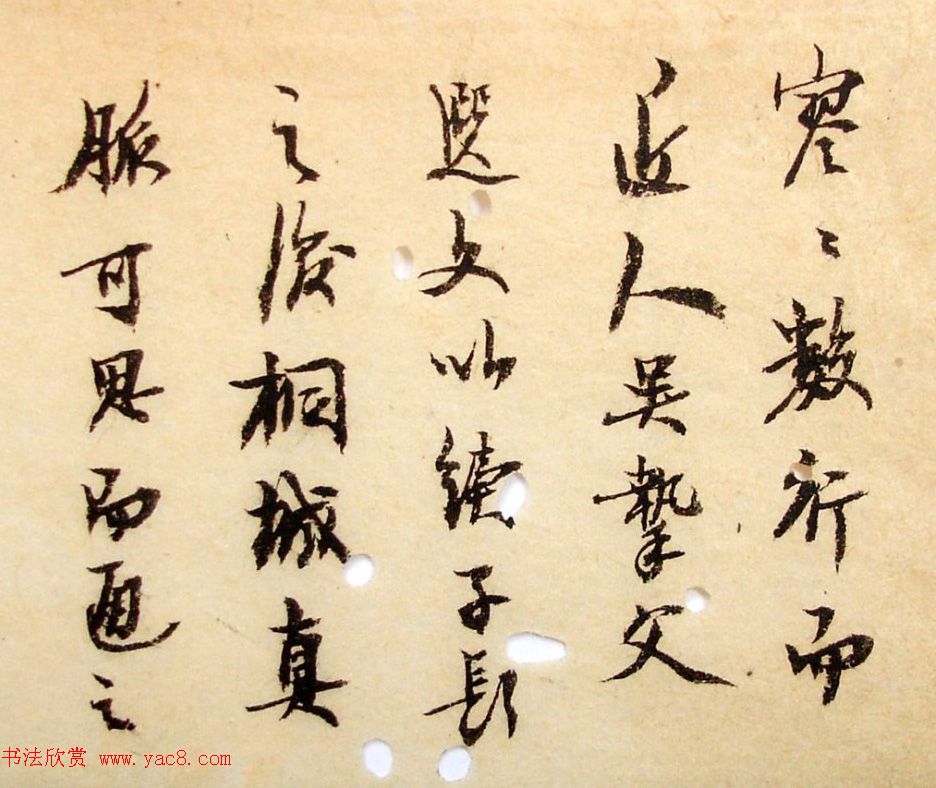 寥々數行而
近人吳摯父
選文以續子長
之後桐城真
脈可思而通之
书法欣赏 www.yac8.com